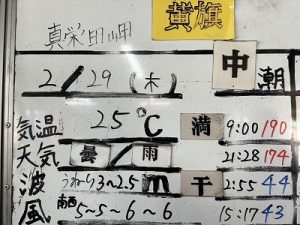 真栄田岬 黄旗
2/29(木) 中潮
気温 25℃ 満 9:00 190
天気 曇/雨 21:28 174
波 うねり3~2.5m 干 2:55 44
風 南西 5~5~6~6 15:17 43